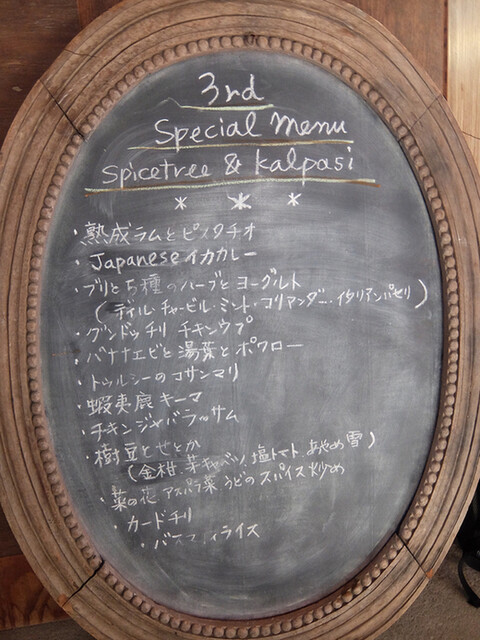 3rd
Special Menu
Spicetree & Kalpasi
* * *
・熟成ラムとピスタチオ
・Japaneseイカカレー
・ブリと5種のハーブとヨーグルト
(ディル・チャービル・ミント・コリアンダー・イタリアンパセリ)
・グンドゥチリ チキンウプ
・バナナエビと湯葉とポワロー
・トゥルシーのコサンマリ
・蝦夷鹿キーマ
・チキンジャバラッサム
・樹豆とせとか
(金柑、芽キャベツ、塩トマト、あやめ雪)
・菜の花 アスパラ菜 うどのスパイス炒め
・カードチリ
・バスマティライス